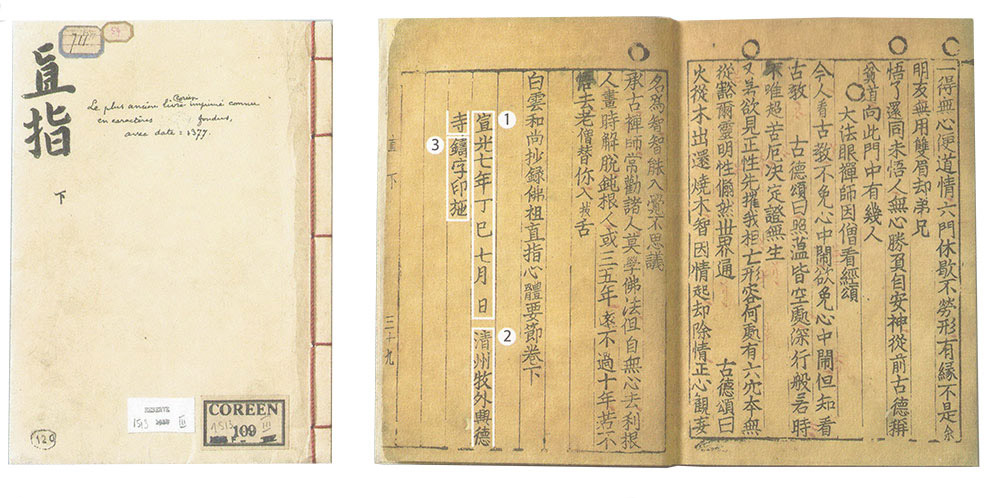 711
直指
下
Coréen
Le plus ancien livre imprimé connu
en caractères fondus,
avec date = 1377.
RESERVE
1513 III
COREEN
109
1513 III
129
一得無心便道情六門休歇不勞形有緣不是余
明友無用雙眉却弟兄
悟了還同未悟人無心勝負自安神從前古德稱
向此門中有幾人
大法眼禪師因僧看經頌
今人看古教不免心中鬧欲免心中鬧但知看
古教 古德頌曰照蘊皆空處深行般若時
不唯超苦厄決定證無生
又若欲見正性先摧我相亡形容何處有六穴本無
從黙爾靈明性儼然世界通 古德頌曰
火從木出還燒木智因情起却除情正心觀妄
名爲智智能入不思議
承古禪師常勸諸人莫學佛法但自無心去利根
人晝時解脫鈍根人或三五年遠不過十年若不
悟去老僧替你入拔舌
白雲和尚抄錄佛祖直指心體要節卷下
① 宣光七年丁巳七月 日 ② 清州牧外興德
寺 ③ 鑄字印施
直 下 三十九